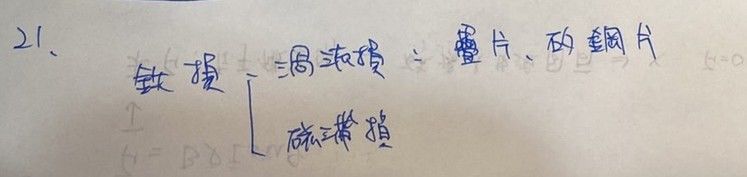 21.
鉄損 - 渦流損 : 疊片、矽鋼片
磁滯損